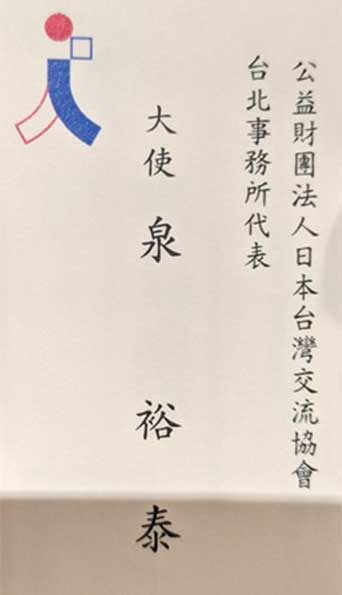 公益財團法人日本台灣交流協會
台北事務所代表
大使 泉 裕 泰